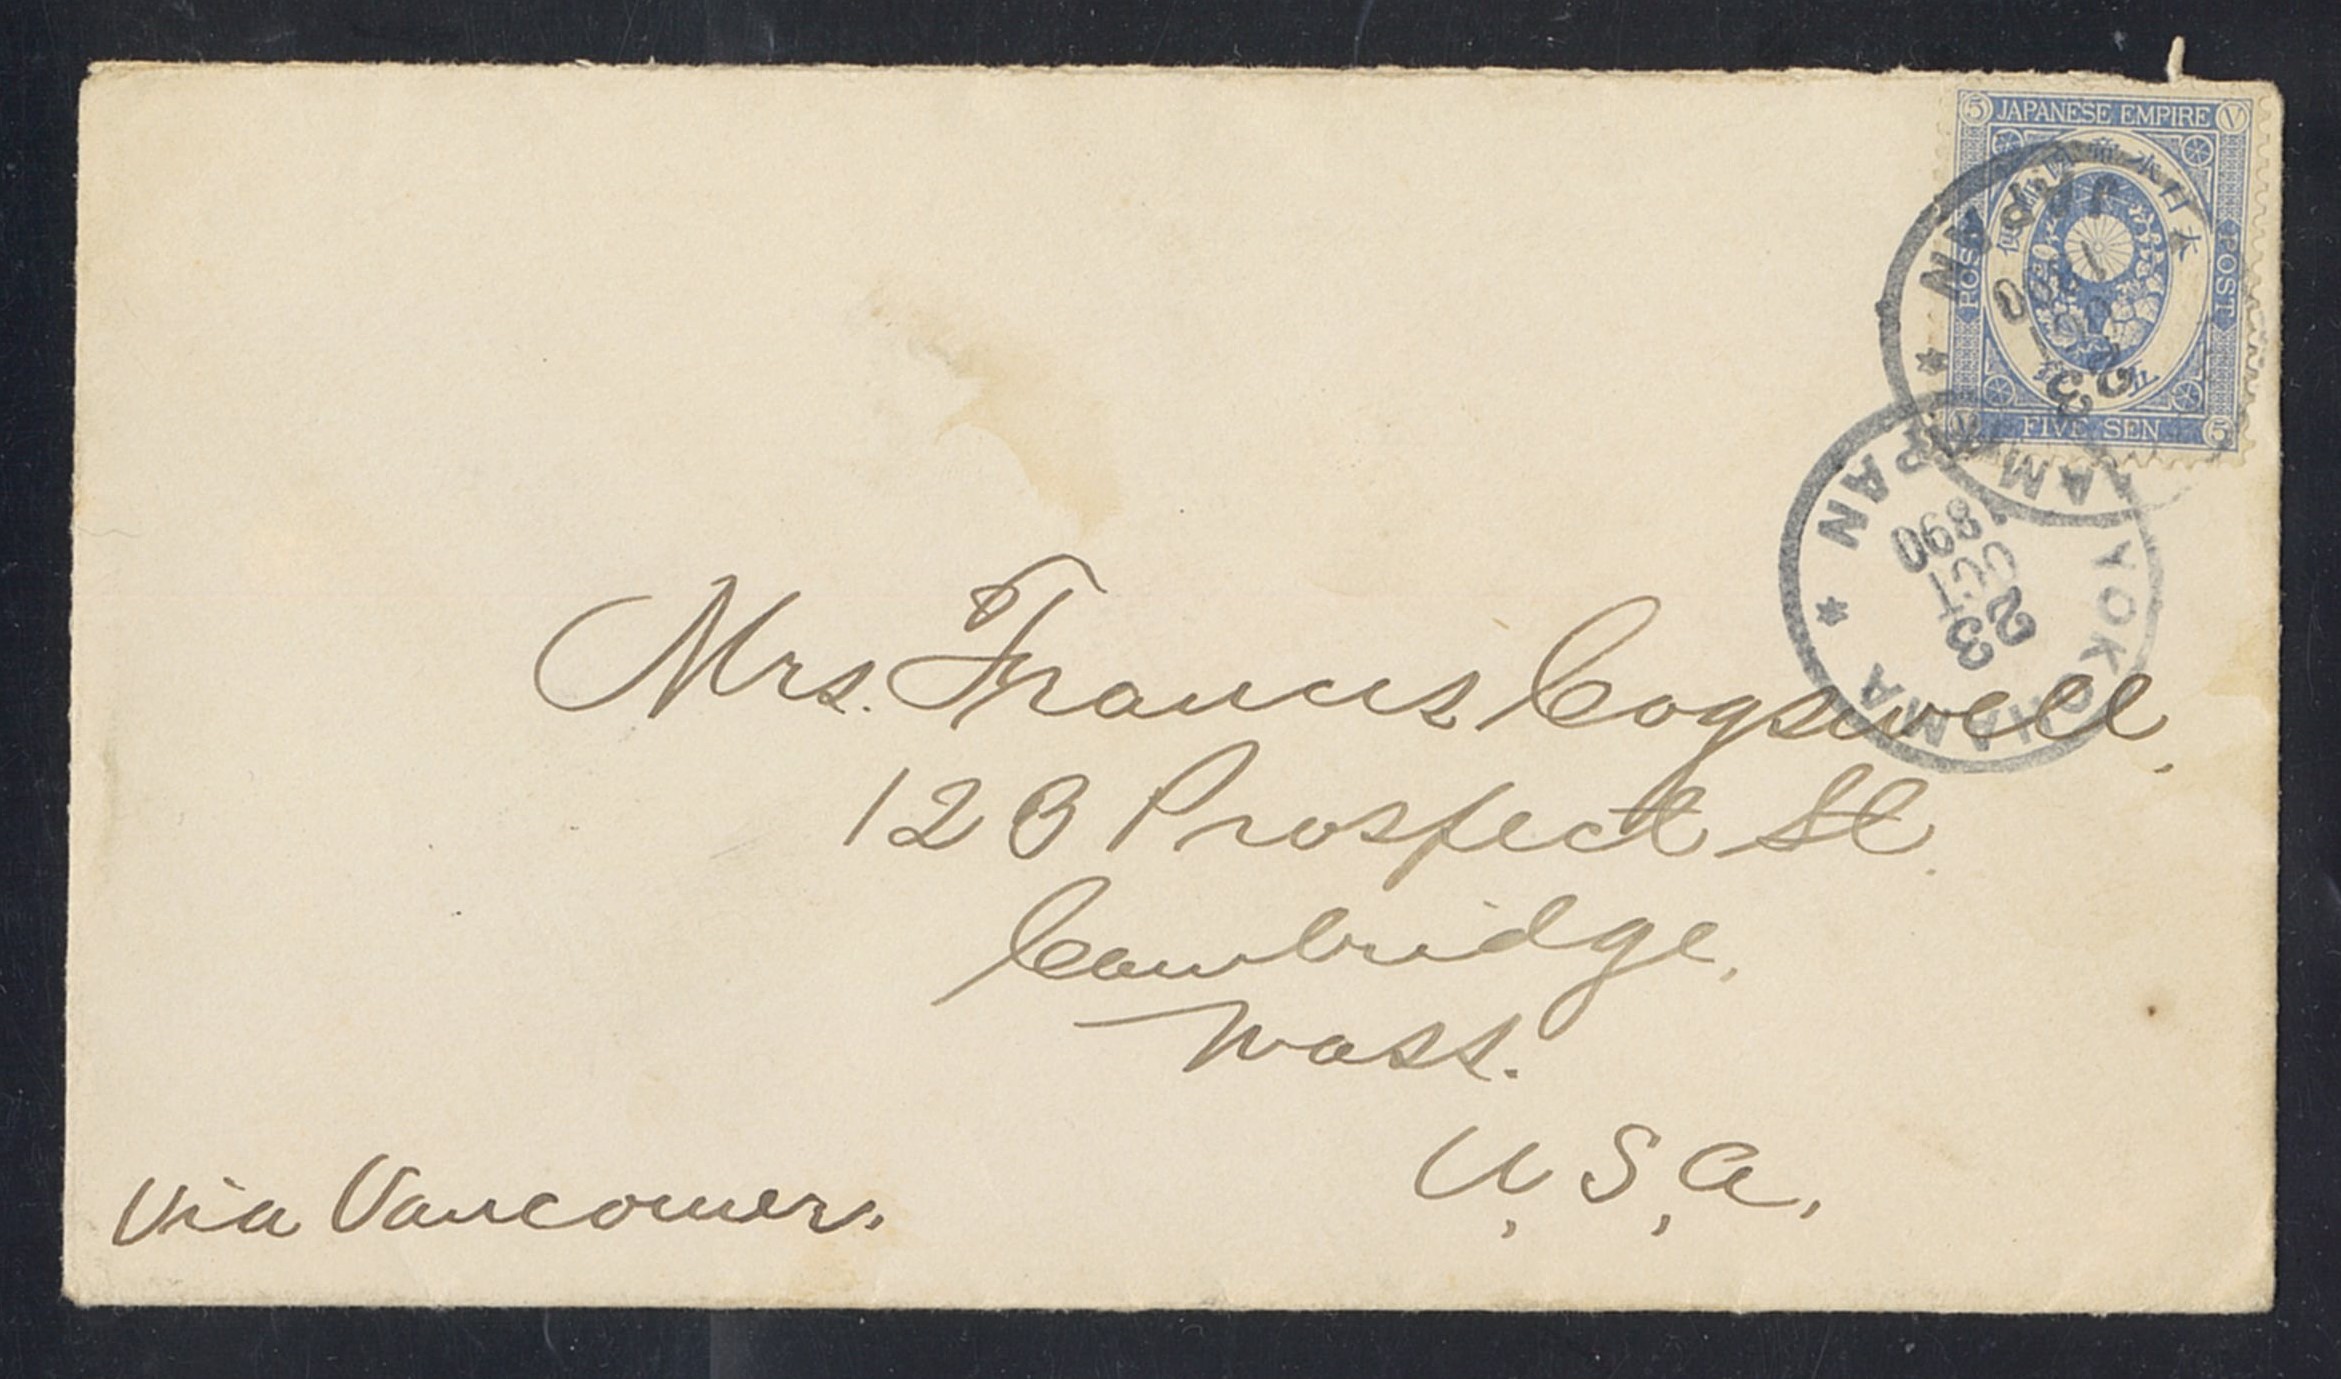 5 JAPANESE EMPIRE V
POST
POST
V FIVE SEN 5
JAPAN
23
YOKOHAMA
JAPAN
23
OCT
1890
Mrs. Francis Cogswell,
120 Prospect St.
Cambridge,
Mass.
U, S, A,
Via Vancouver.